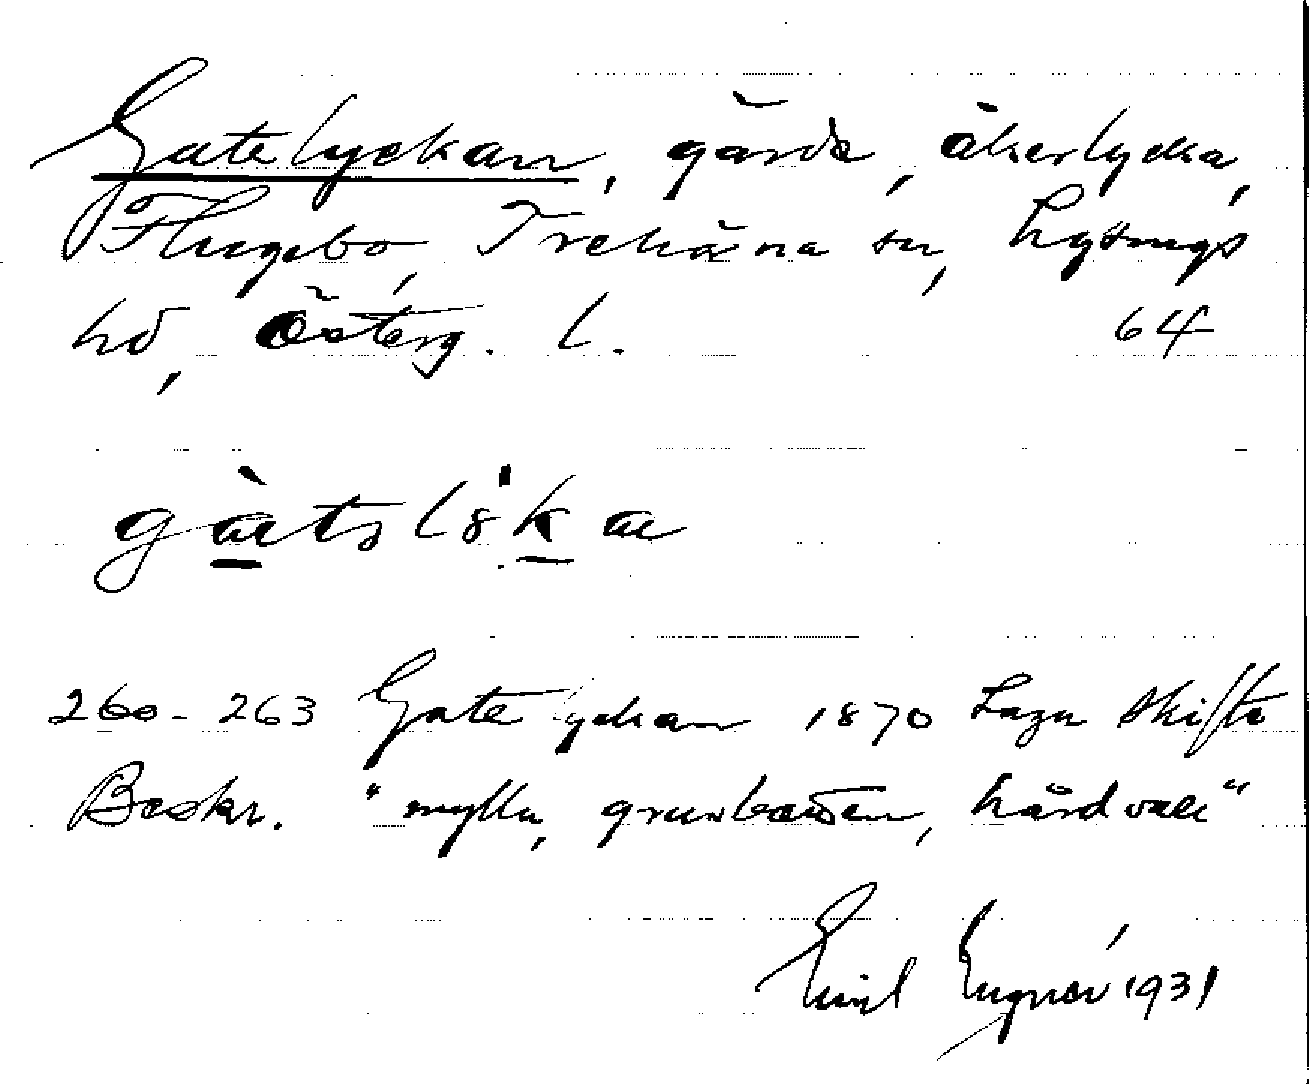 Gatelyckan, gärde, åkerlycka,
Flugebo, Trehörna sn, Lysings
hd, Österg. l. 64
gàtslʻ8ka
260-263 Gatelyckan 1870 Laga skifte
Beskr. "mylla, grusbotten, hårdvall"
Emil 1931